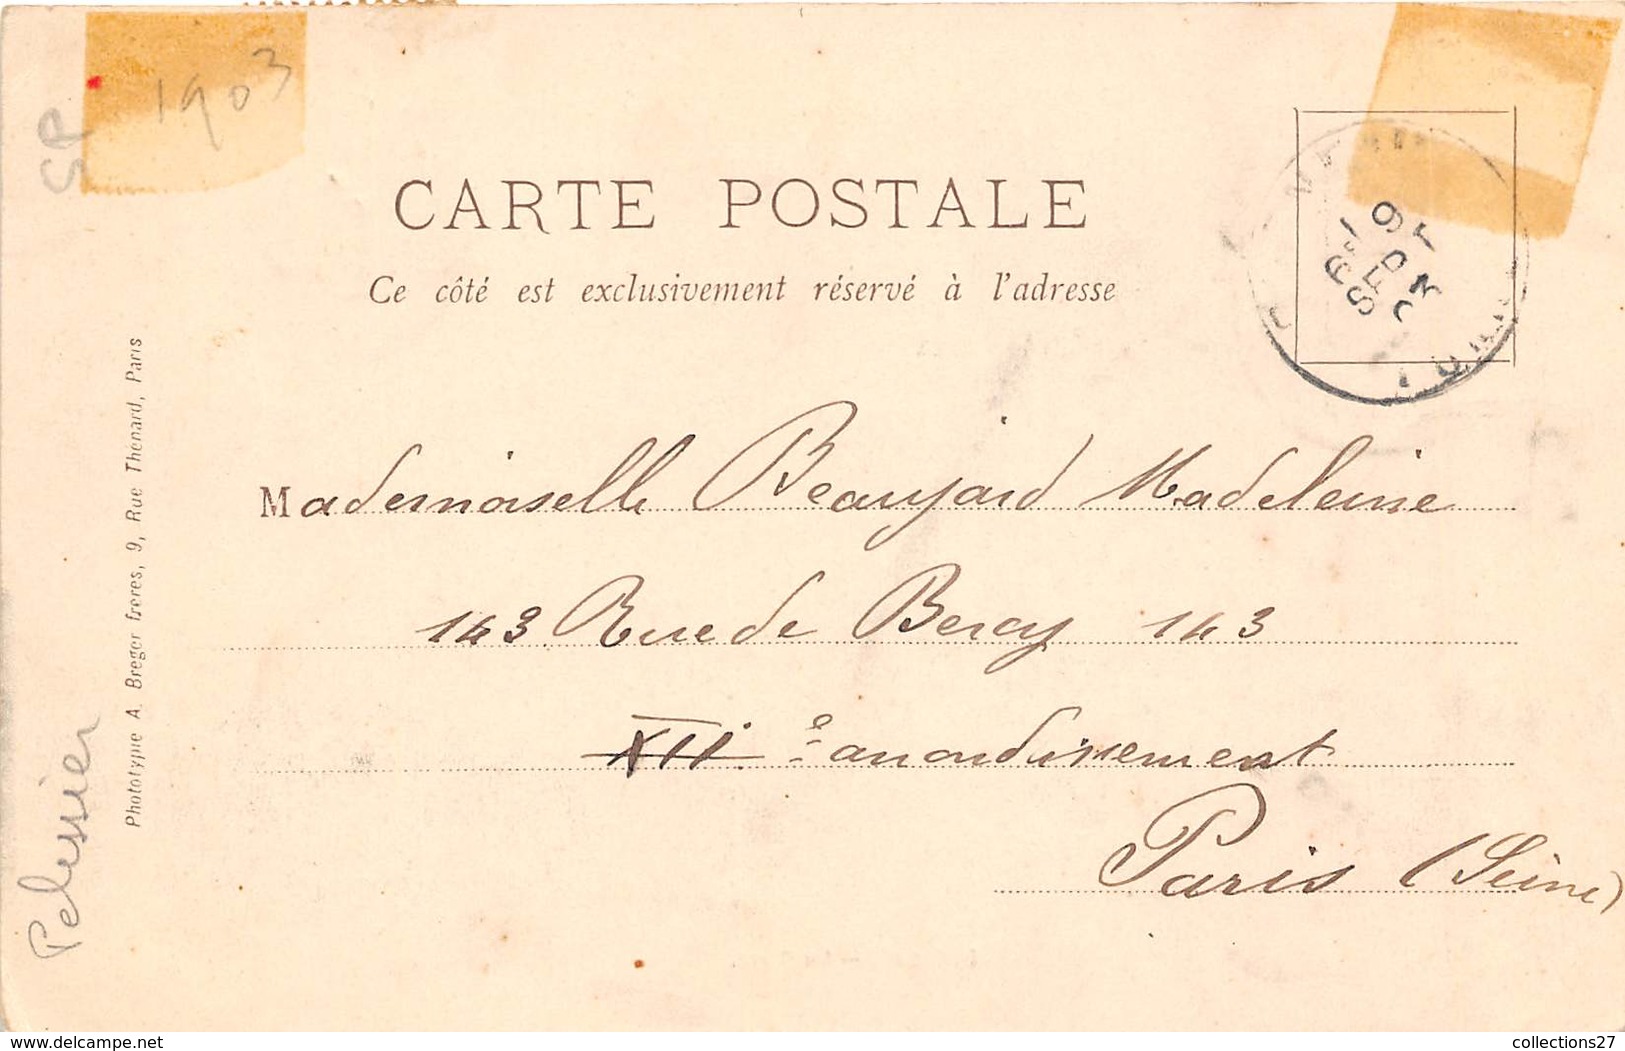 1903
SP
CARTE POSTALE
Ce côté est exclusivement réservé à l'adresse
9
SEPT
03
Phototypie A. Breger frères, 9, Rue Thénard, Paris
Mademoiselle Beaujard Madeleine
143 Rue de Bercy 143
XII e arrondissement
Paris (Seine)
Pelessier
www.delcampe.net
collections27